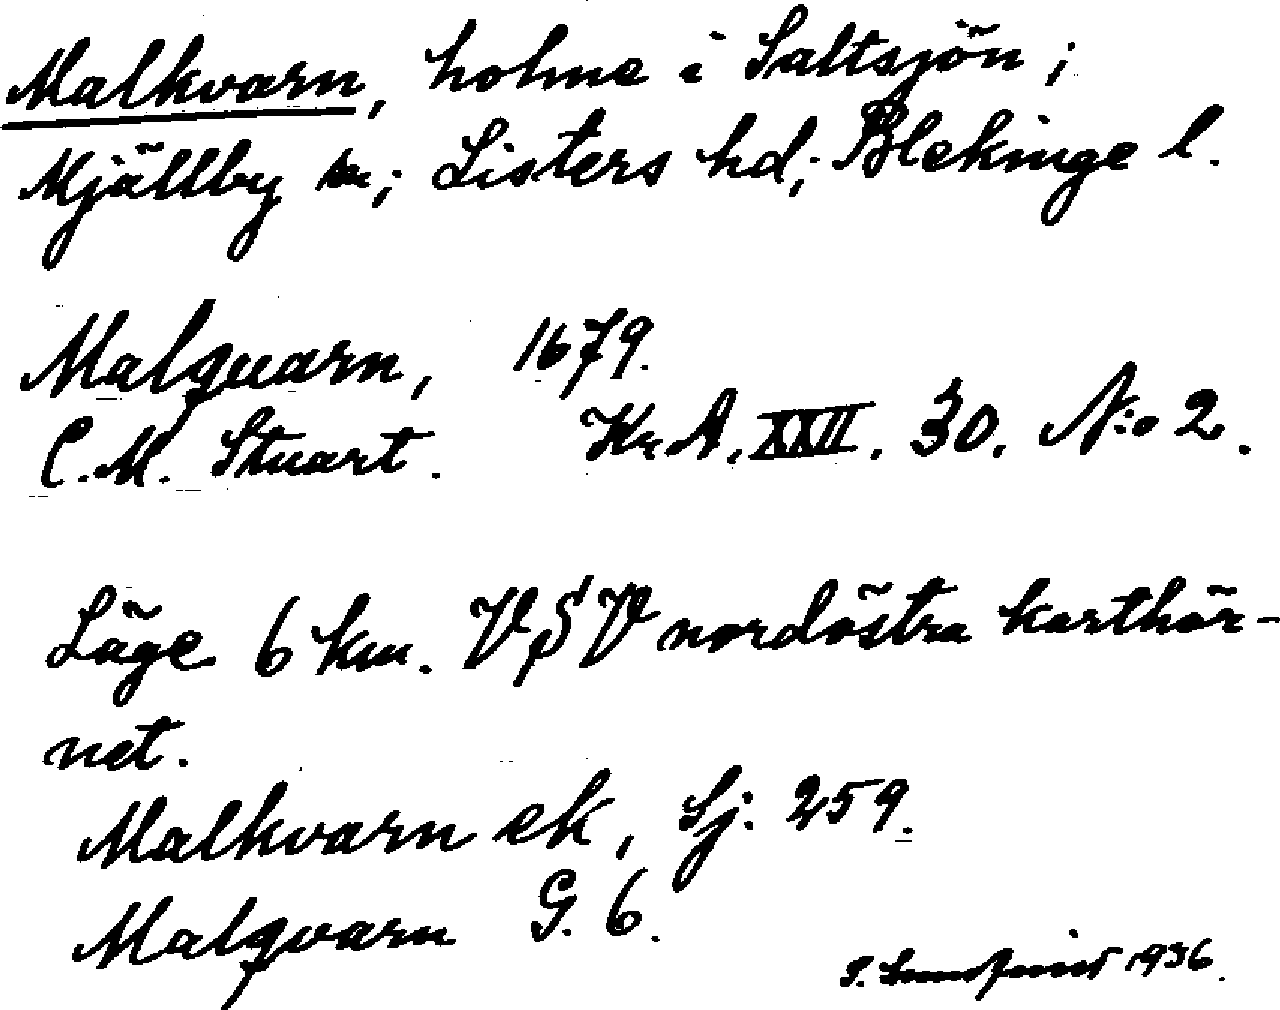 Malkvarn, holme i Saltsjön;
Mjällby sn; Listers hd; Blekinge l.
Malquarn, 1679.
C. M. Stuart. Kr A. XXII. 30. N:o 2.
Läge 6 km. VSV nordöstra karthör-
net.
Malkvarn ek, Sj. 259.
Malqvarn G. 6.
1936.